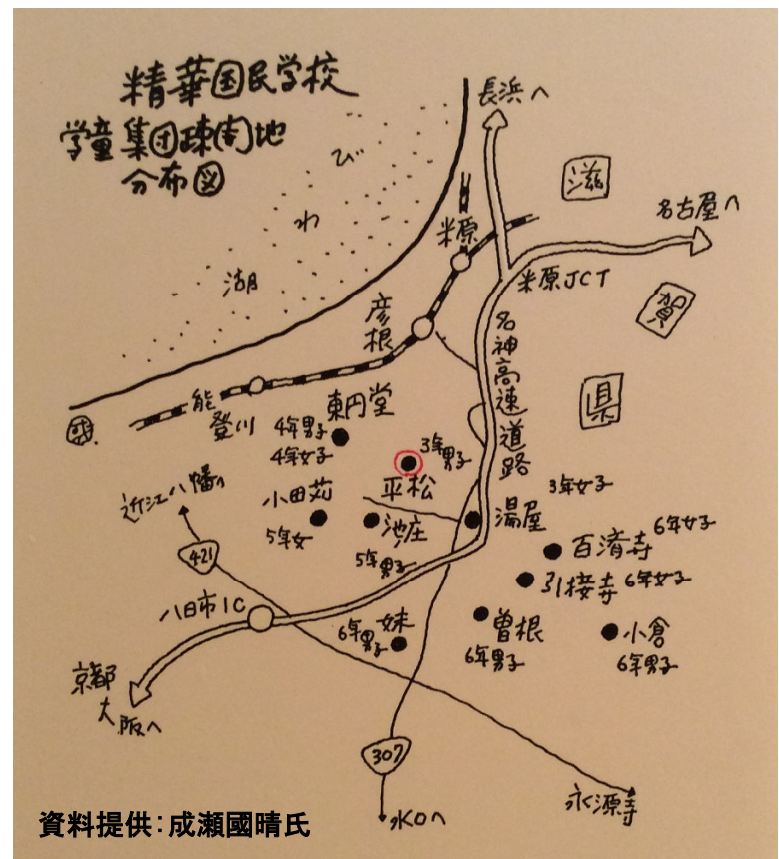 精華国民学校
学童集団疎開地
分布図
びわ湖
長浜へ
滋賀県
名古屋へ
米原
米原JCT
彦根
名神高速道路
能登川
東円堂
4年男子
4年女子
3年男子
平松
小田苅
5年女
池庄
5年男子
湯屋
3年女子
百済寺
6年女子
引接寺 6年女子
近江八幡へ
421
八日市IC
妹
6年男子
曽根
6年男子
小倉
6年男子
京都
大阪へ
307
水口へ
永源寺
資料提供:成瀬國晴氏